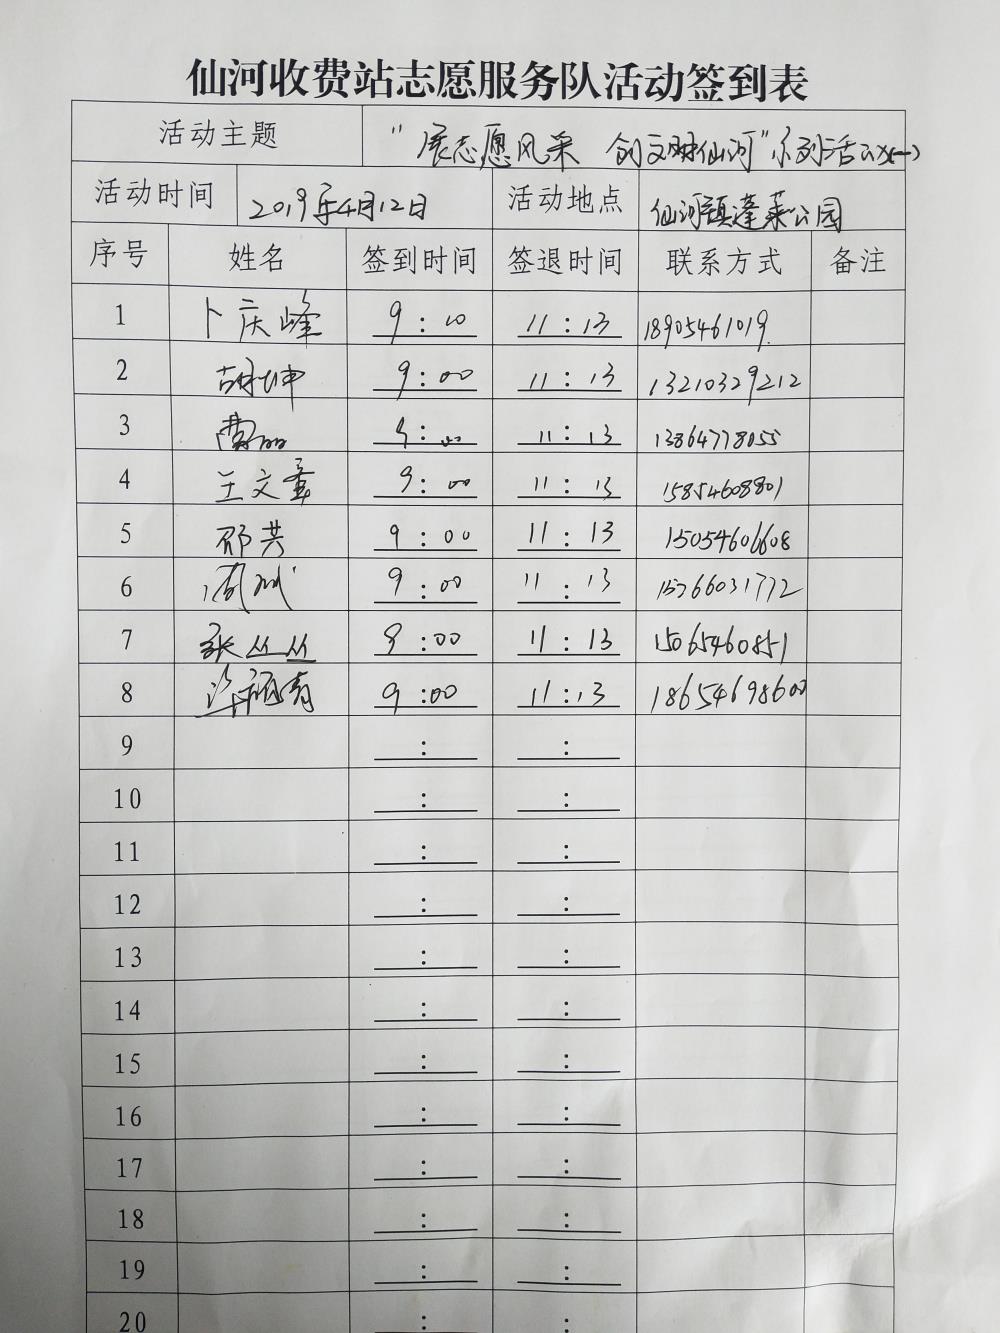 仙河收费站志愿服务队活动签到表
活动主题 “展志愿风采 创文明仙河”系列活动(一)
活动时间 2019年4月12日 活动地点 仙河镇蓬莱公园
序号 姓名 签到时间 签退时间 联系方式 备注
1 卜庆峰 9:00 11:13 18905461019
2 胡坤 9:00 11:13 13210329212
3 曹丽 9:00 11:13 13864778055
4 王文 9:00 11:13 15854608801
5 邵芸 9:00 11:13 15054606608
6 9:00 11:13 15266031772
7 张丛丛 9:00 11:13 15065460851
8 9:00 11:13 18654698600
9 : :
10 : :
11 : :
12 : :
13 : :
14 : :
15 : :
16 : :
17 : :
18 : :
19 : :
20 : :